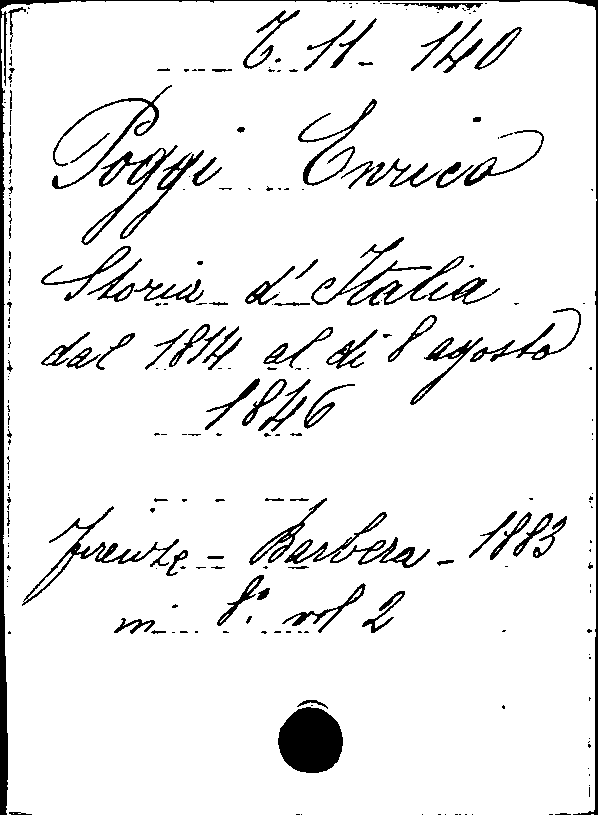 T. 11 - 140
Poggi Enrico
Storia d'Italia
dal 1814 al di 8 agosto
1846
Firenze - Barbera - 1883
in 8° vol 2